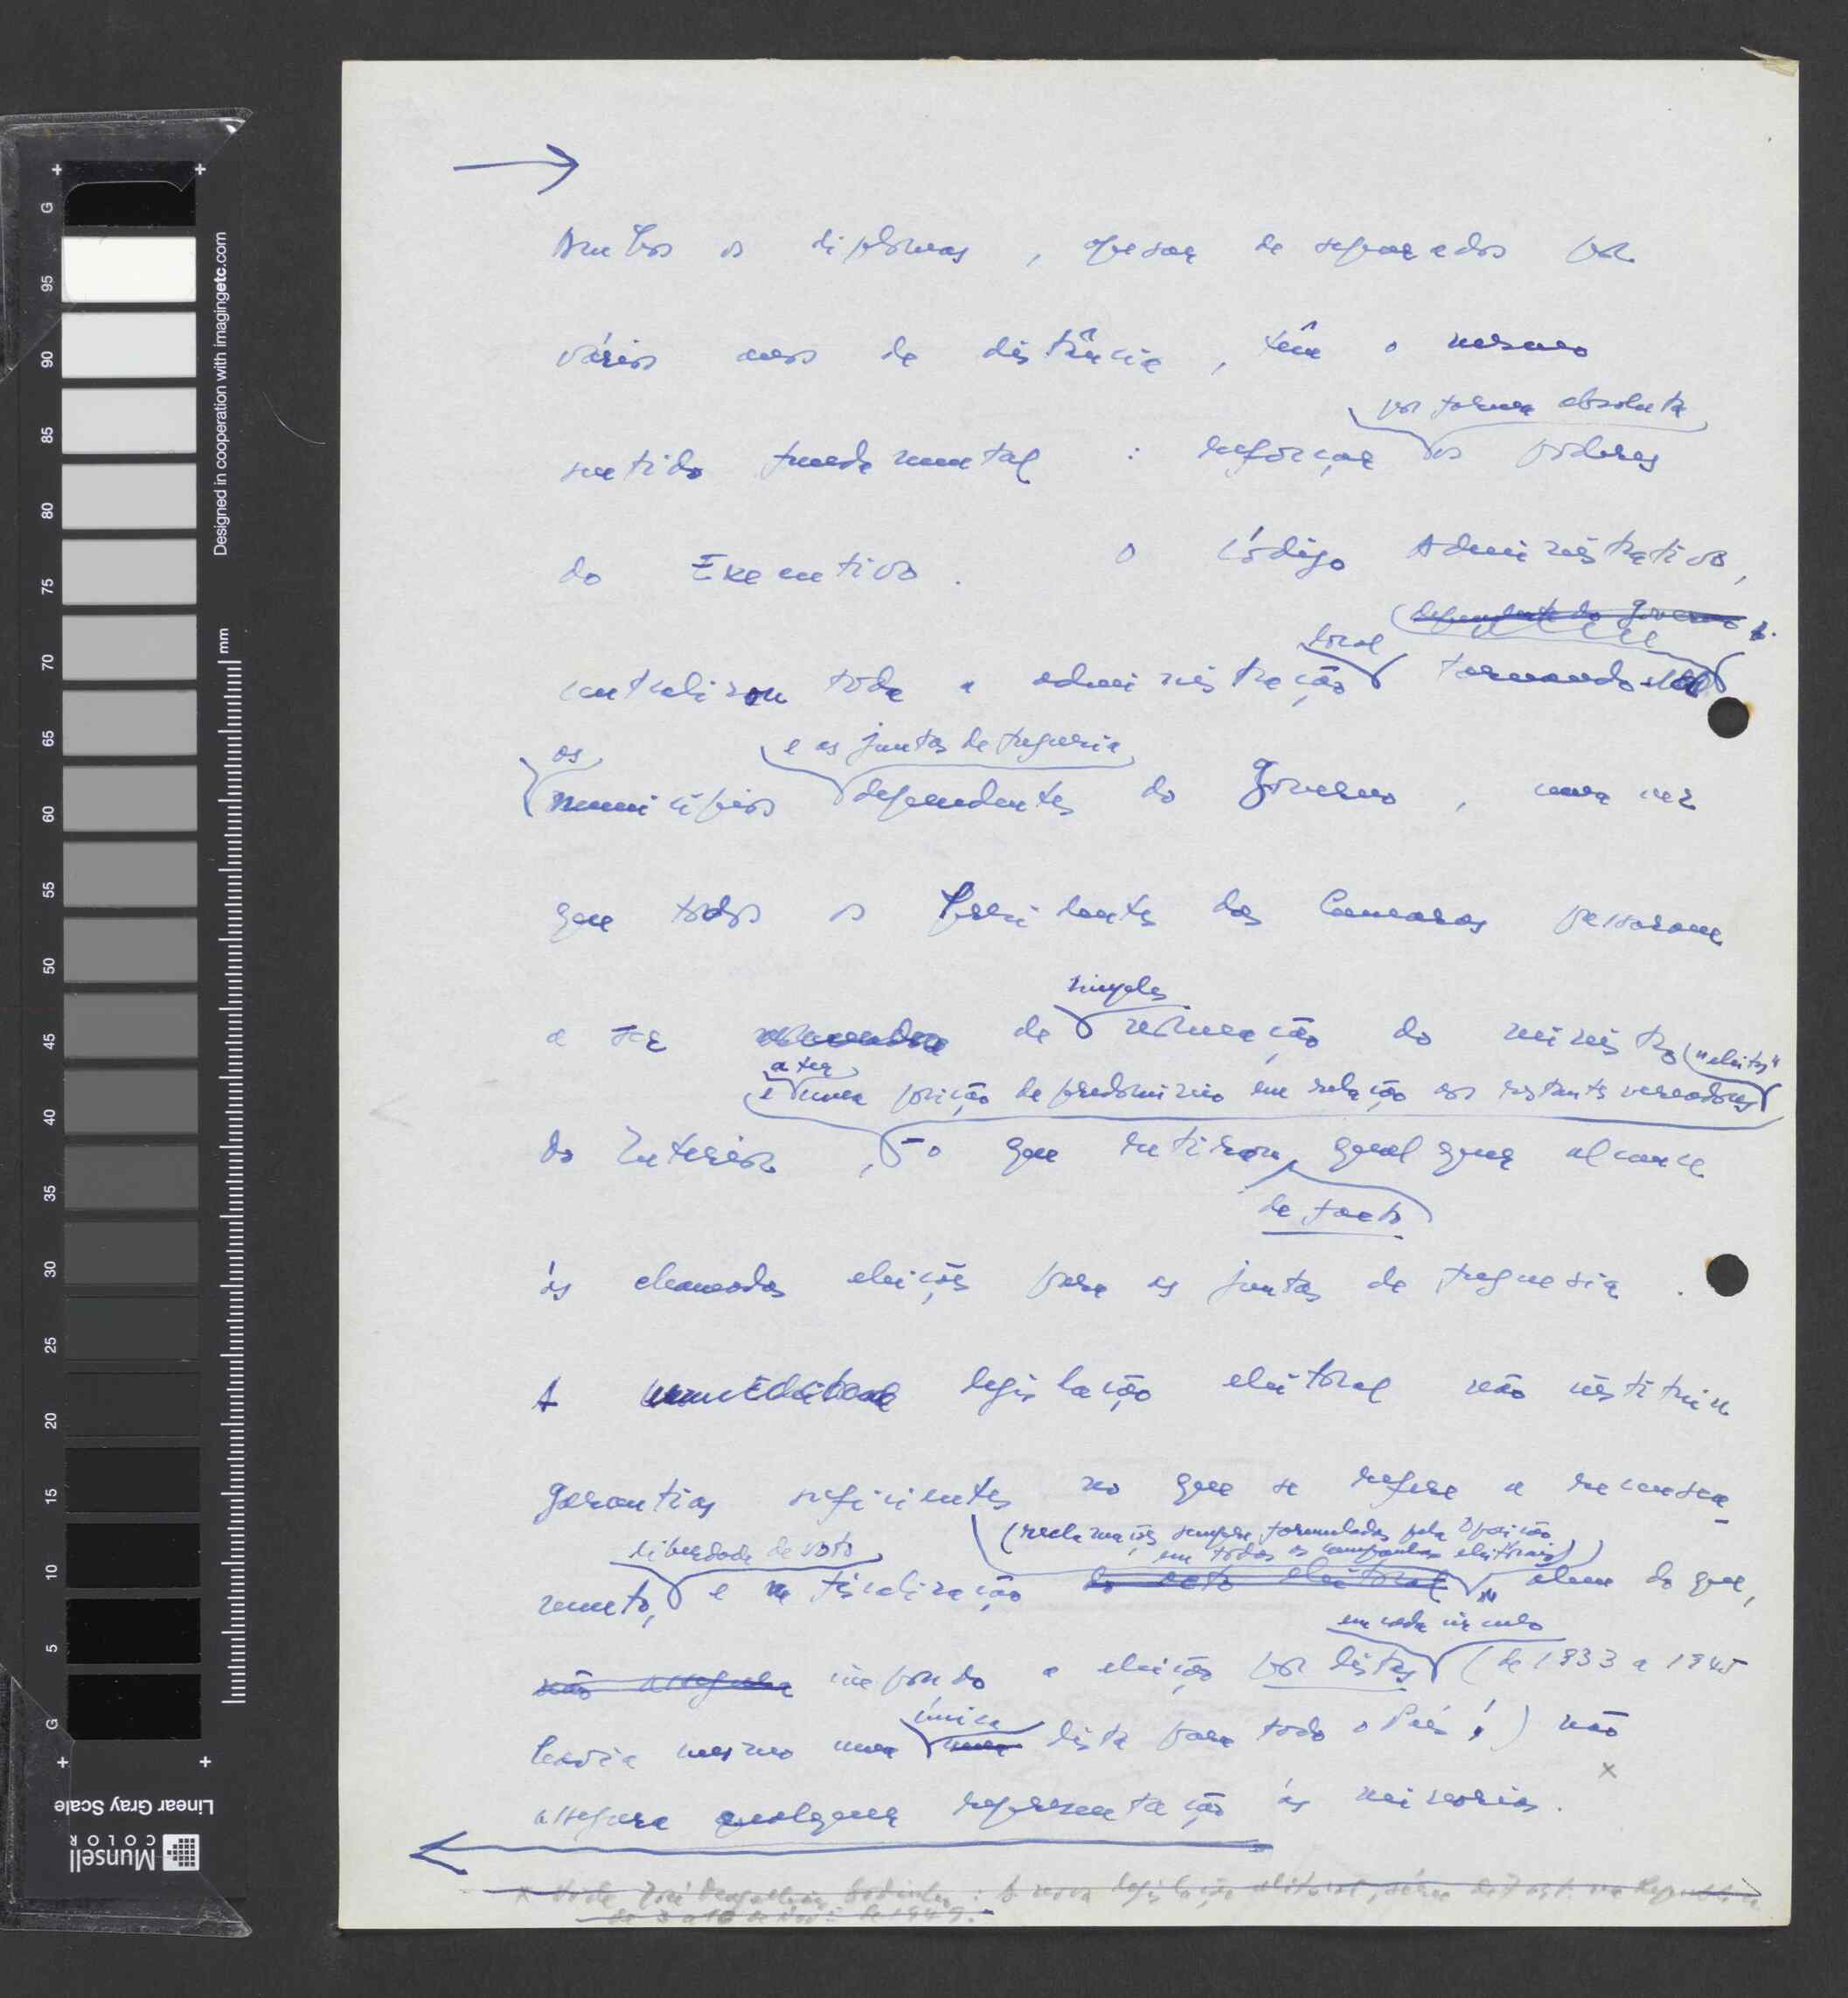 Ambos os diplomas, apesar de separados por
vários anos de distância, têm o mesmo
por forma absoluta
sentido fundamental : reforçar os poderes
do Executivo. O Código Administrativo,
dependente do Governo
local
centralizou toda a administração tornando
os
e as juntas de freguesia
municípios dependentes do Governo, uma vez
que todos os Presidentes das Camaras passaram
simples
a ser de nomeação do ministro ("eleitos"
a ter
e uma posição de predominio em relação aos restantes vereadores
do Interior, - o que retirou qualquer alcance
de facto
às chamadas eleições para as juntas de freguesia.
A legislação eleitoral não institui
garantias suficientes no que se refere a recensea-
(reclamações sempre formuladas pela Oposição
em todas as campanhas eleitorais)
liberdade de voto
mento, e fiscalização do acto eleitoral, alem do que,
em cada circulo
não assegura impondo a eleição por listas (de 1933 a 1945
única
havia mesmo uma uma lista para todo o País!) não
x
assegura qualquer representação às minorias.
x Vide José Magalhães Godinho: A nova legislação eleitoral, série de 7 art. na República
de 3 a 10 de de 1949.
G 95 90 85 80 75 70 65 60 55 50 45 40 35 30 25 20 15 10 5 G
Designed in cooperation with imagingetc.com
mm
Linear Gray Scale
Munsell
COLOR